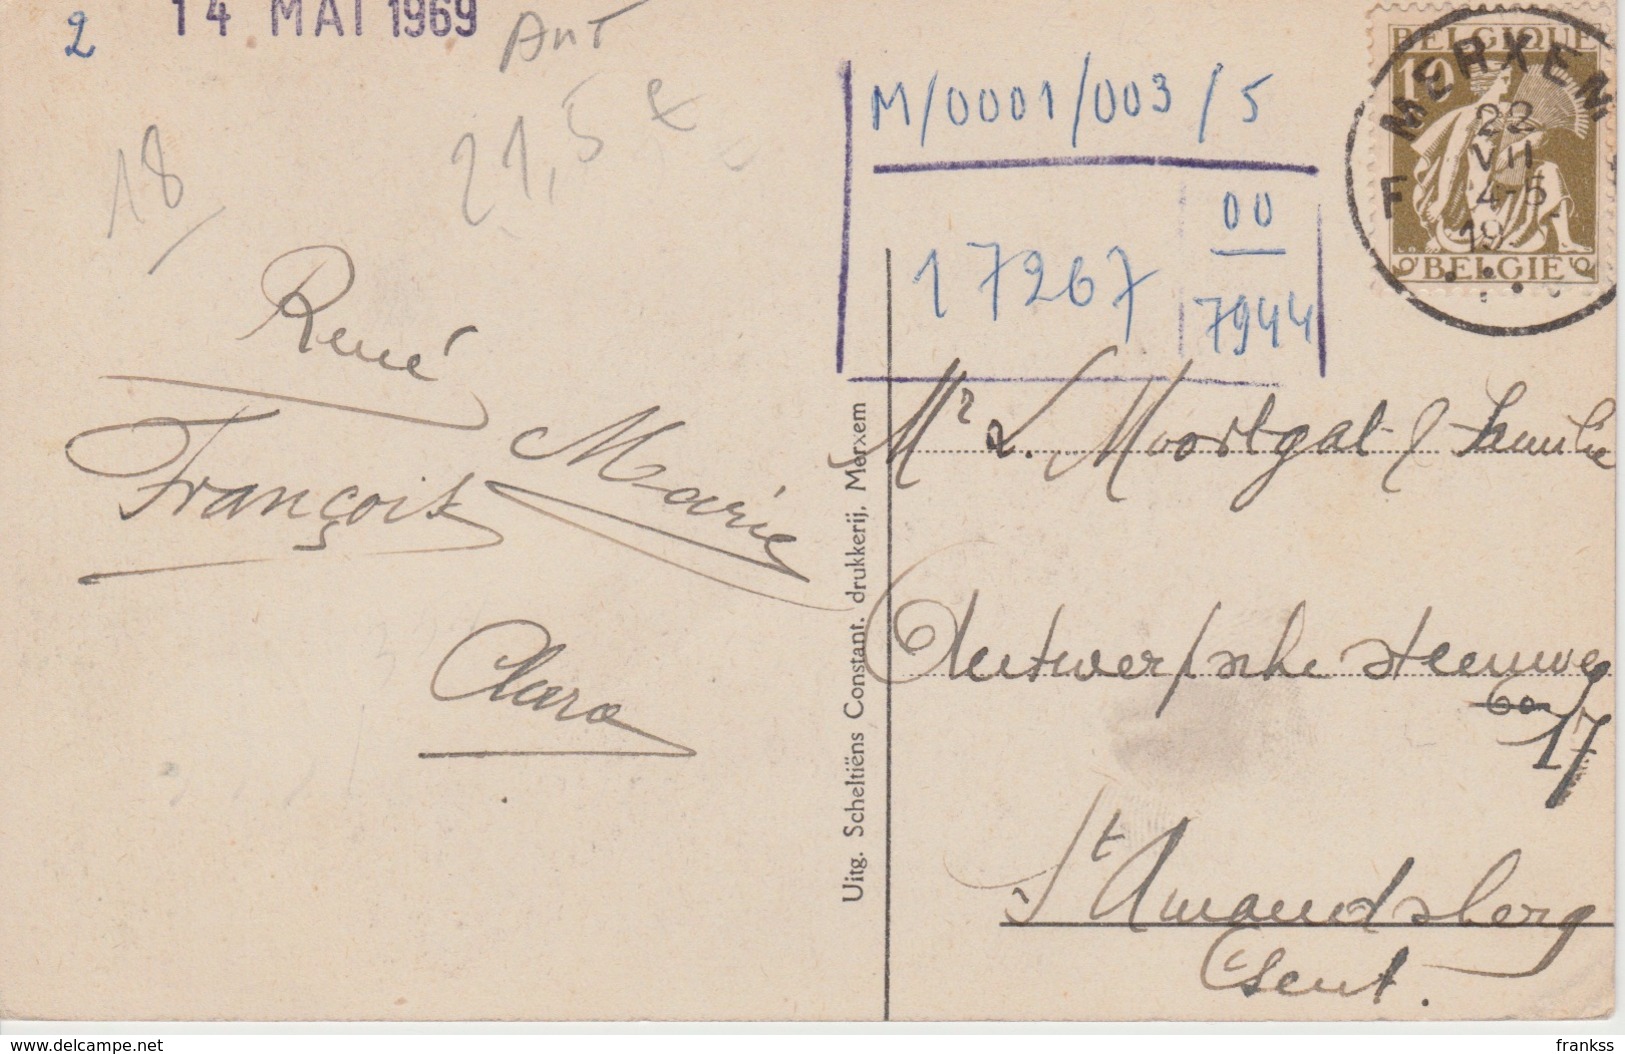 2
14 MAI 1969
Ant
21,5
18/
René
François
Marie
Clara
Uitg. Scheltiëns Constant. drukkerij, Merxem
M/0001/003/5
17267
00
7944
BELGIQUE
10
BELGIË
MERXEM
22
VII
4-5
19
F
Mr L. Moortgat & familie
Antwerpsche steenweg
60
17
St Amandsberg
Gent.
delcampe.net
frankss